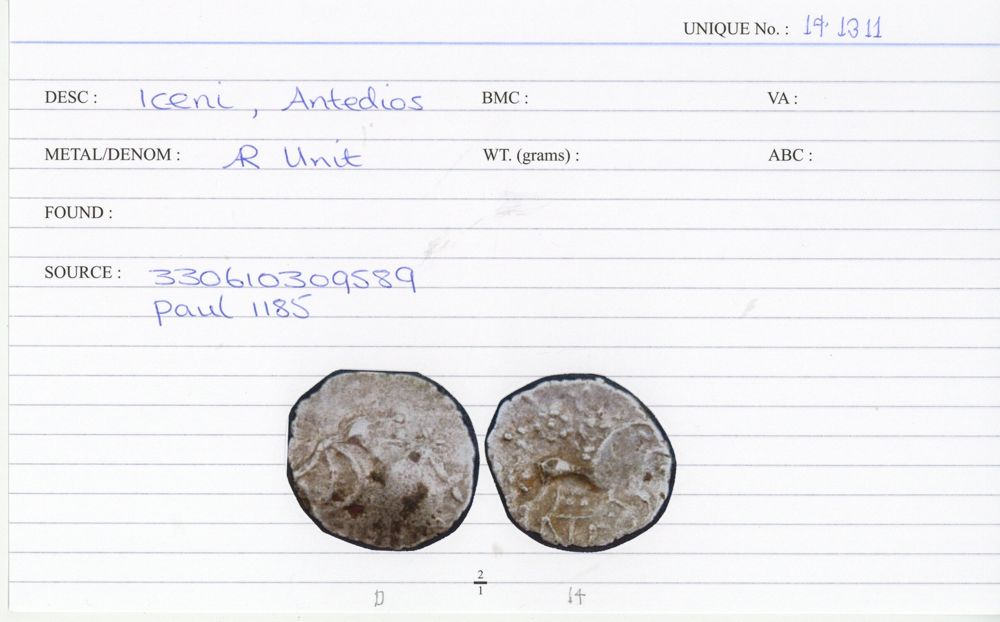 UNIQUE No. : 14 1311
DESC : Iceni, Antedios BMC : VA :
METAL/DENOM : AR Unit WT. (grams) : ABC :
FOUND :
SOURCE : 330610309589
paul 1185
2
1
D 14